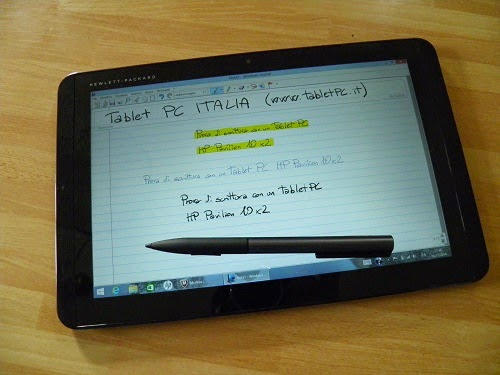 HEWLETT-PACKARD
Tablet PC ITALIA (www.tabletPC.it)
Prova di scrittura con un Tablet PC
HP Pavilion 10 x2
Prova di scrittura con un Tablet PC HP Pavilion 10 x2
Prova di scrittura con un Tablet PC
HP Pavilion 10 x2